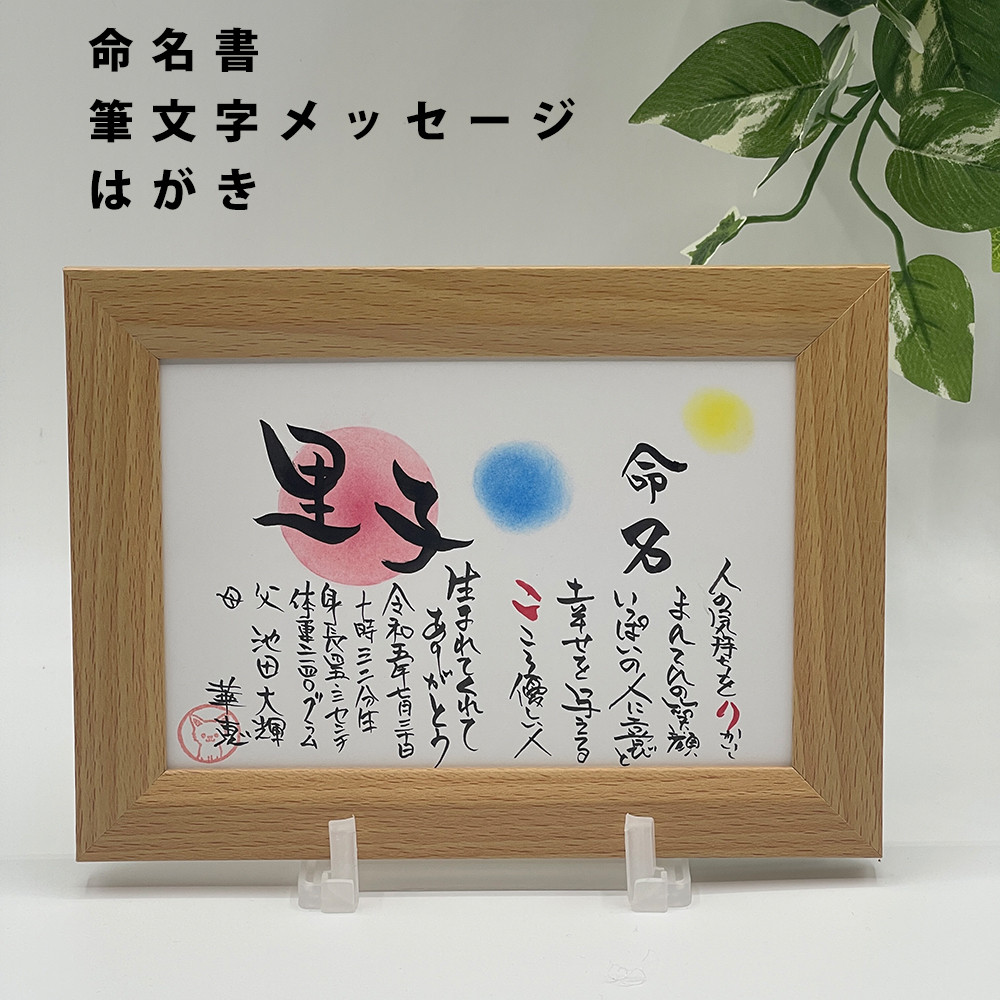 命名書
筆文字メッセージ
はがき
命名
人の気持ちをりかいし
まんてんの笑顔
いっぱいの人に喜びと
幸せを与える
こころ優しい人
里子
生まれてくれて
ありがとう
令和五年七月三十日
十時三二分生
身長四三センチ
体重二一四〇グラム
父 池田大輝
母 華恵